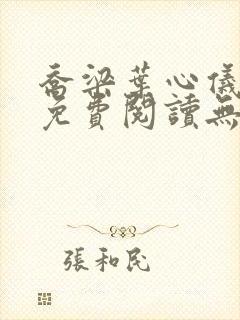 喬梁葉心儀
免費閱讀無
張和民